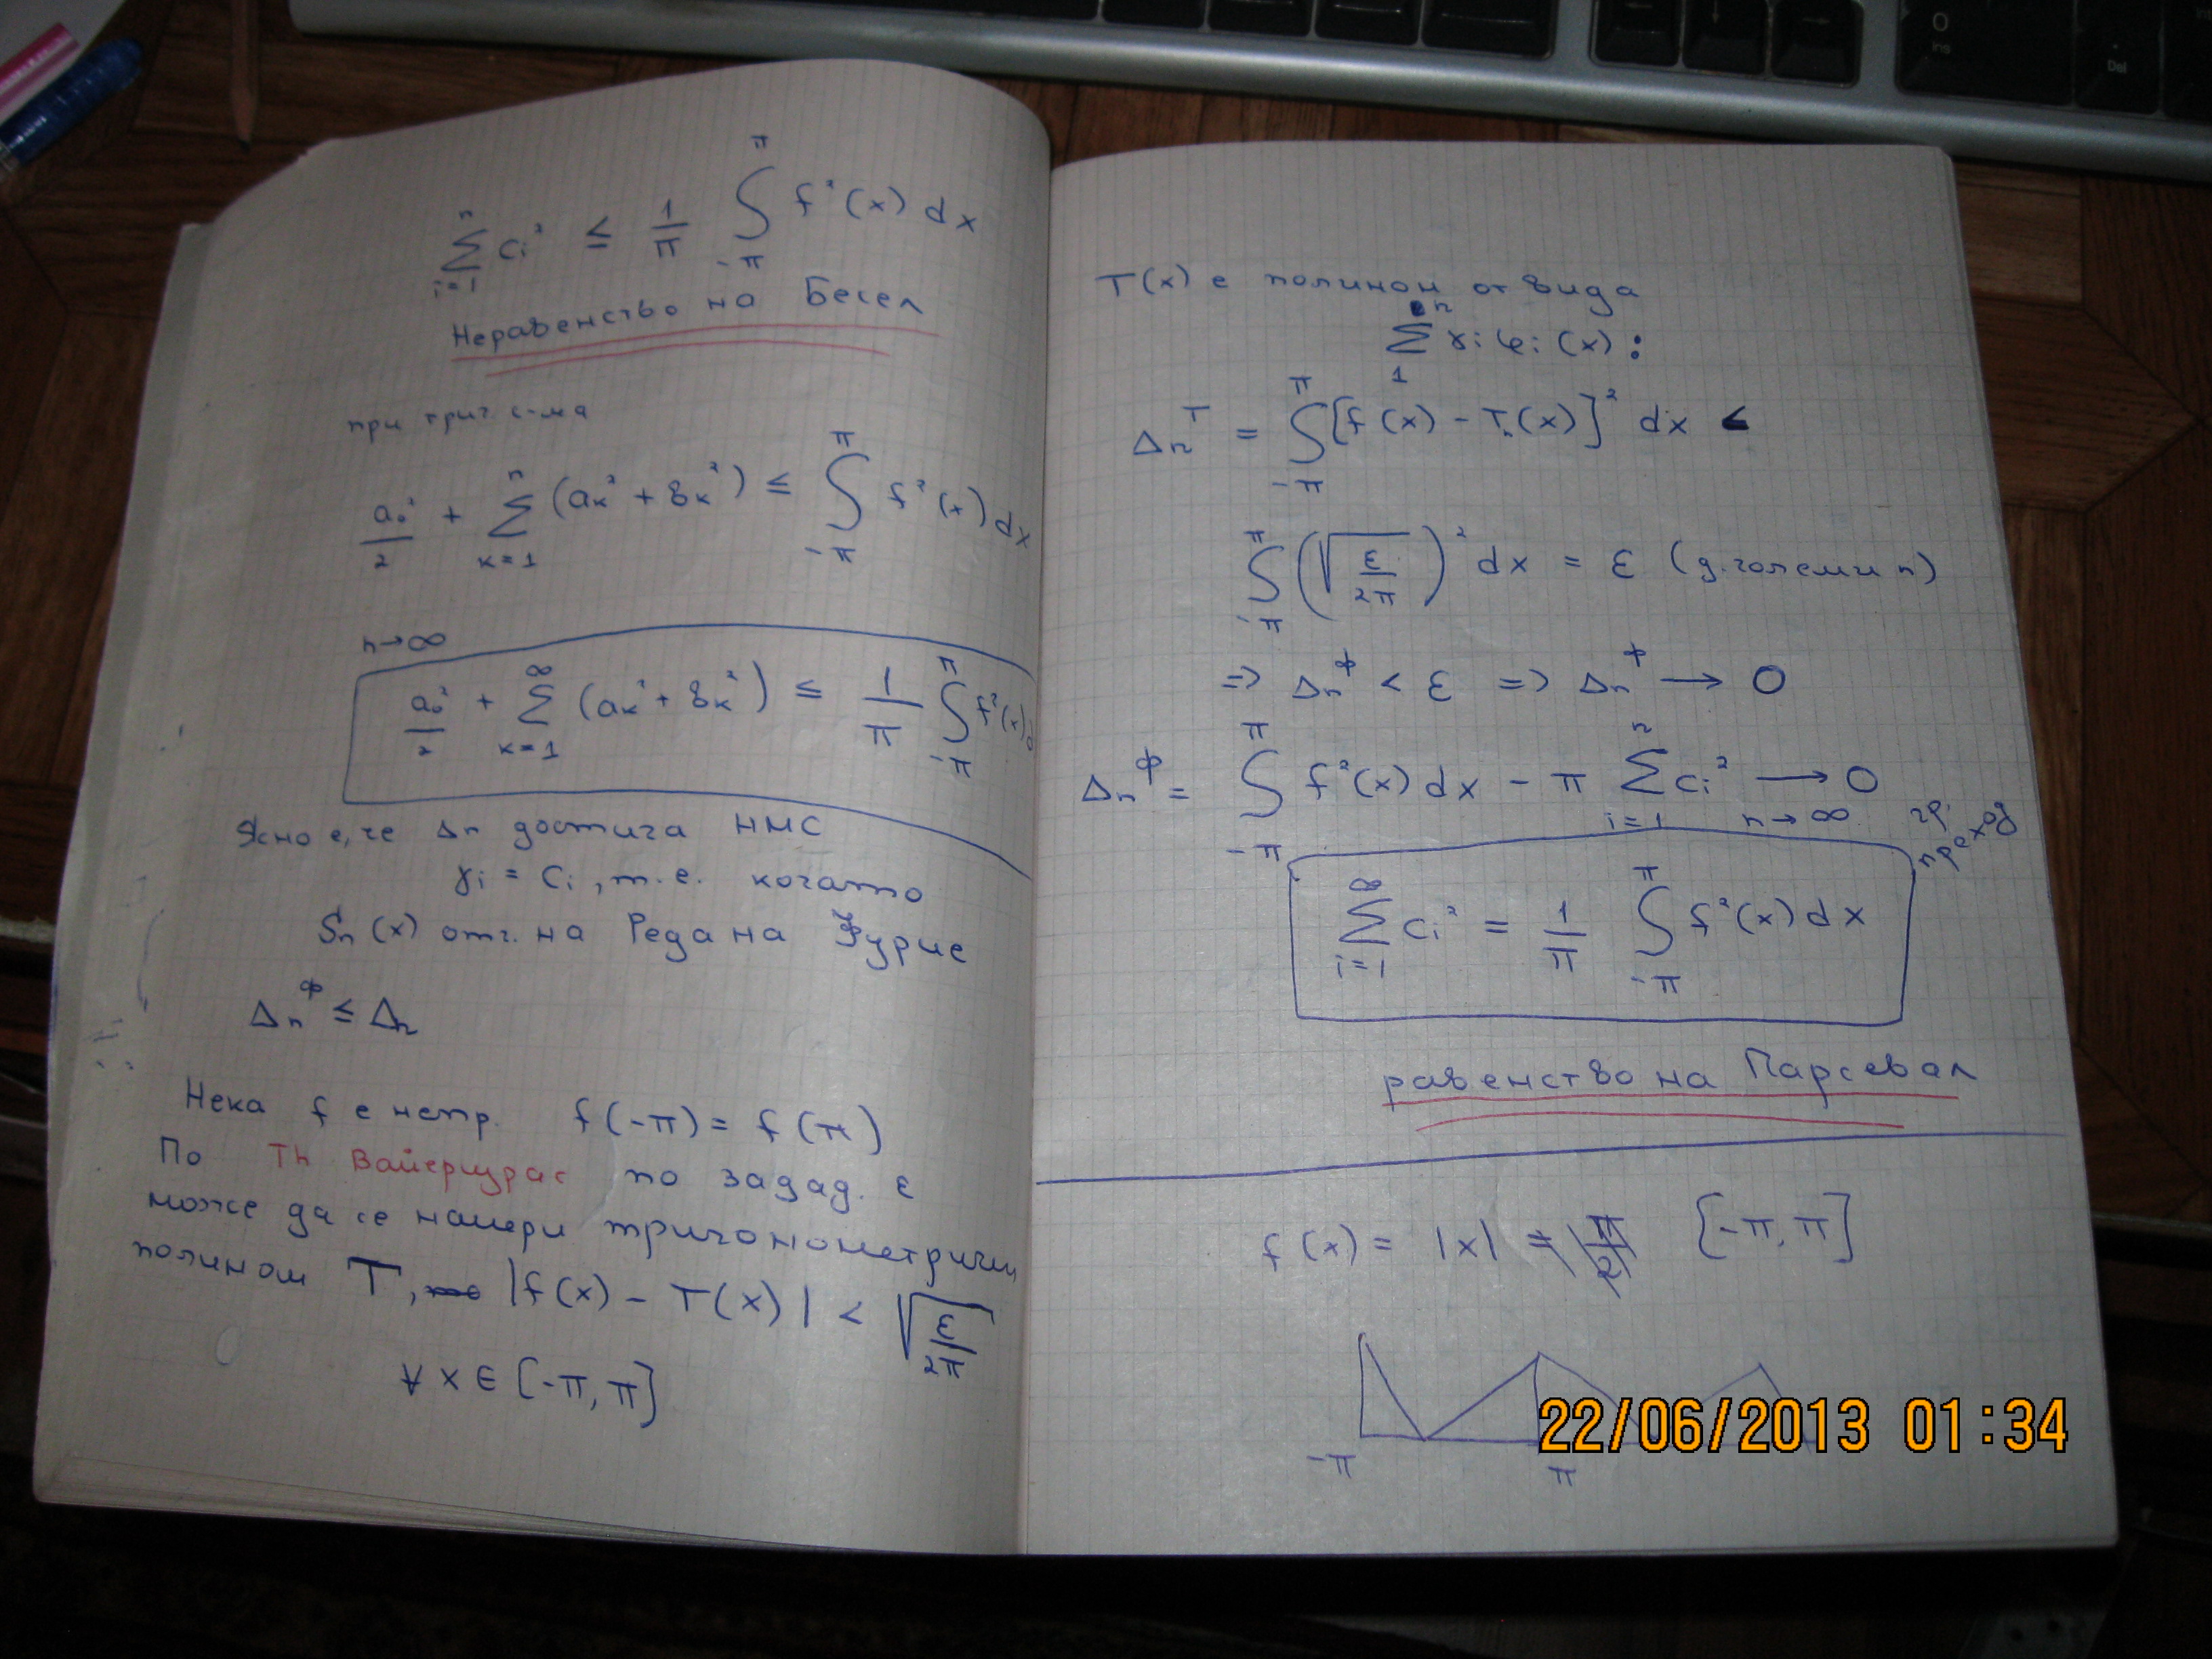 n
∑ cᵢ² ≤ 1/π ∫ f²(x) dx
i=1 -π π
Неравенство на Бесел
при триг. с-ма
a₀²/2 + ∑ (aₖ² + bₖ²) ≤ ∫ f²(x) dx
k=1 n -π π
n→∞
a₀²/2 + ∑ (aₖ² + bₖ²) ≤ 1/π ∫ f²(x)
k=1 ∞ -π π
Ясно е, че Δn достига НМС
γᵢ = cᵢ, т.е. когато
Sn(x) отг. на Реда на Фурие
Δn^ф ≤ Δn
Нека f е непр. f(-π) = f(π)
По Th Вайерщрас по задад. ε
може да се намери тригонометричен
полином T, |f(x) - T(x)| < √(ε/2π)
∀ x ∈ [-π, π]
T(x) е полином от вида
n
∑ γᵢ φᵢ(x):
1
Δn^T = ∫ [f(x) - T(x)]² dx <
-π π
∫ (√(ε/2π))² dx = ε (д. големи n)
-π π
=> Δn^ф < ε => Δn^ф → 0
Δn^ф = ∫ f²(x) dx - π ∑ cᵢ² → 0
-π π i=1 n n→∞
гр. преход
∑ cᵢ² = 1/π ∫ f²(x) dx
i=1 ∞ -π π
равенство на Парсевал
f(x) = |x| [-π, π]
-π π
22/06/2013 01:34
0
Ins
Del